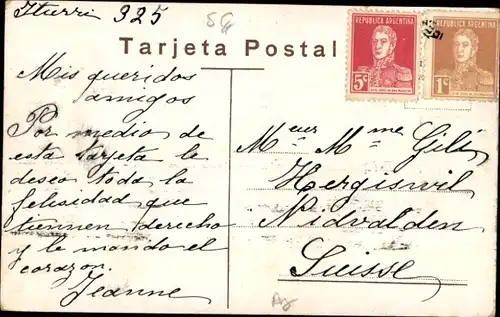 Iturri 325
SG
Tarjeta Postal
REPUBLICA ARGENTINA
5c
REPUBLICA ARGENTINA
1c
Mis queridos
amigos
Por medio de
esta tarjeta le
deseo toda la
felisidad que
tiennen derecho
y le mando el
corazon.
Jeanne
Meur Mme Gili
Hergiswil
Nidvalden
Suisse